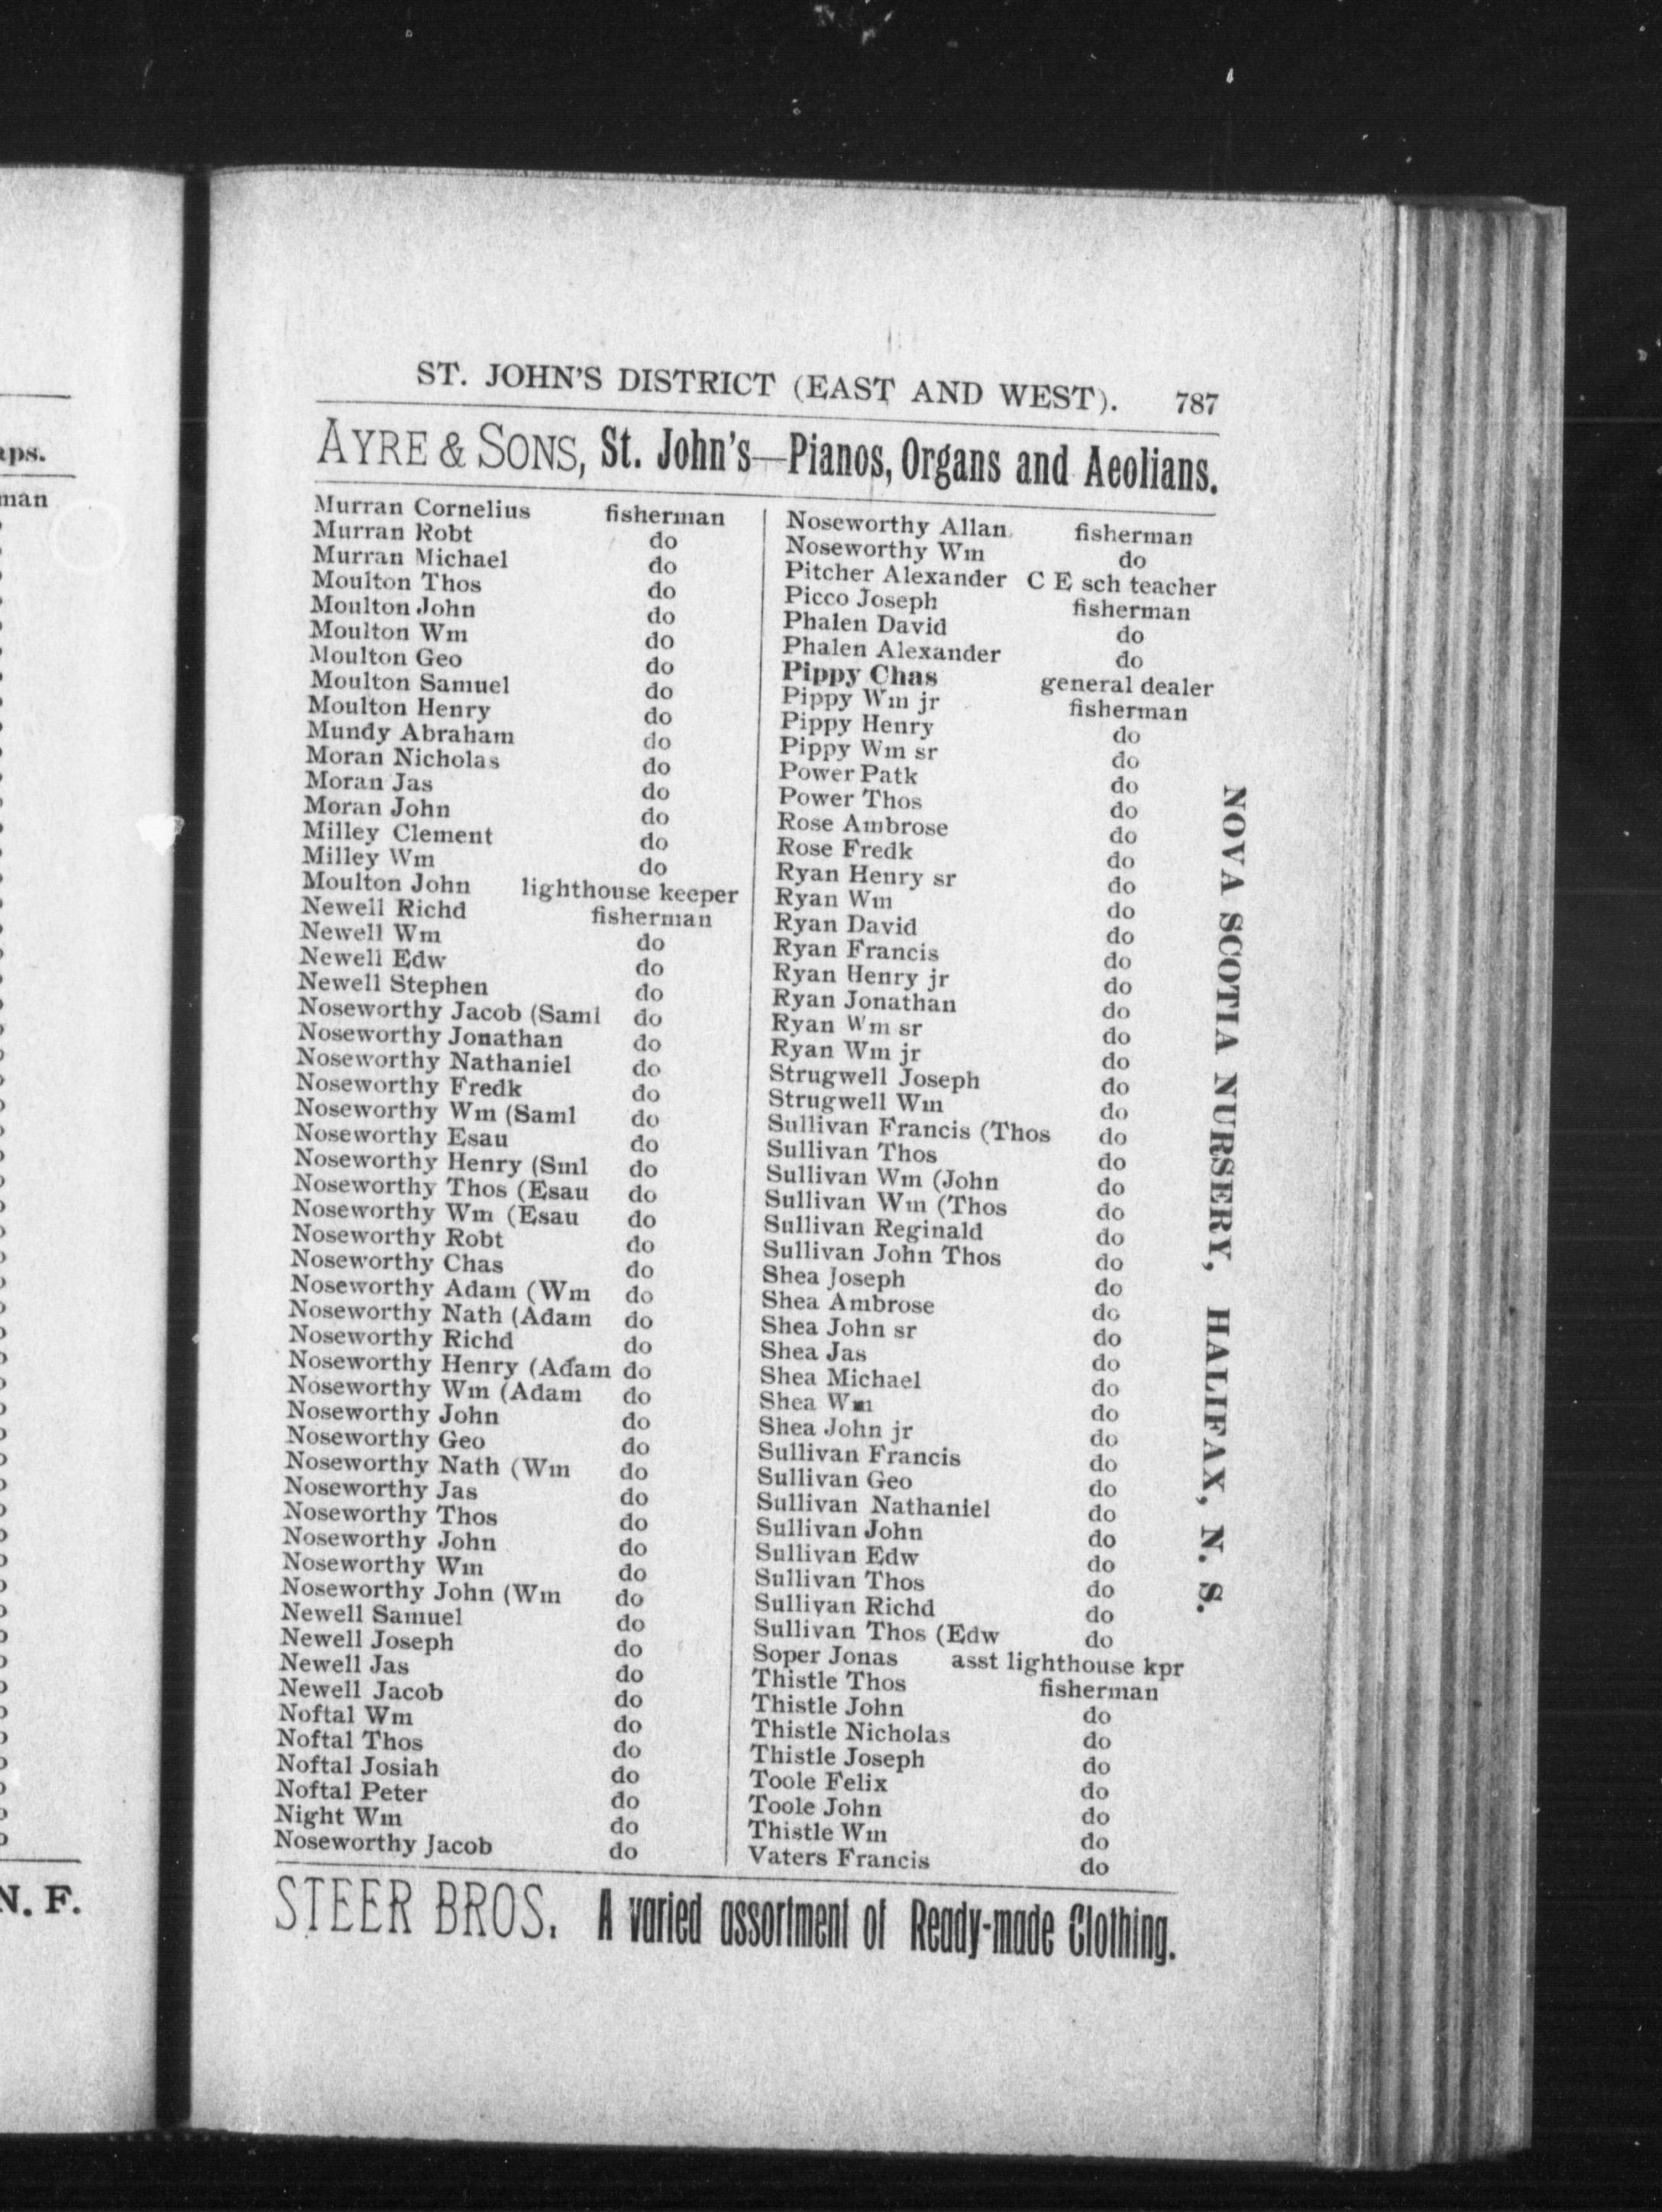 aps.
man
N. F.
ST. JOHN'S DISTRICT (EAST AND WEST). 787
AYRE & SONS, St. John's—Pianos, Organs and Aeolians.
Murran Cornelius fisherman
Murran Robt do
Murran Michael do
Moulton Thos do
Moulton John do
Moulton Wm do
Moulton Geo do
Moulton Samuel do
Moulton Henry do
Mundy Abraham do
Moran Nicholas do
Moran Jas do
Moran John do
Milley Clement do
Milley Wm do
Moulton John lighthouse keeper
Newell Richd fisherman
Newell Wm do
Newell Edw do
Newell Stephen do
Noseworthy Jacob (Saml do
Noseworthy Jonathan do
Noseworthy Nathaniel do
Noseworthy Fredk do
Noseworthy Wm (Saml do
Noseworthy Esau do
Noseworthy Henry (Sml do
Noseworthy Thos (Esau do
Noseworthy Wm (Esau do
Noseworthy Robt do
Noseworthy Chas do
Noseworthy Adam (Wm do
Noseworthy Nath (Adam do
Noseworthy Richd do
Noseworthy Henry (Adam do
Noseworthy Wm (Adam do
Noseworthy John do
Noseworthy Geo do
Noseworthy Nath (Wm do
Noseworthy Jas do
Noseworthy Thos do
Noseworthy John do
Noseworthy Wm do
Noseworthy John (Wm do
Newell Samuel do
Newell Joseph do
Newell Jas do
Newell Jacob do
Noftal Wm do
Noftal Thos do
Noftal Josiah do
Noftal Peter do
Night Wm do
Noseworthy Jacob do
Noseworthy Allan fisherman
Noseworthy Wm do
Pitcher Alexander C E sch teacher
Picco Joseph fisherman
Phalen David do
Phalen Alexander do
Pippy Chas general dealer
Pippy Wm jr fisherman
Pippy Henry do
Pippy Wm sr do
Power Patk do
Power Thos do
Rose Ambrose do
Rose Fredk do
Ryan Henry sr do
Ryan Wm do
Ryan David do
Ryan Francis do
Ryan Henry jr do
Ryan Jonathan do
Ryan Wm sr do
Ryan Wm jr do
Strugwell Joseph do
Strugwell Wm do
Sullivan Francis (Thos do
Sullivan Thos do
Sullivan Wm (John do
Sullivan Wm (Thos do
Sullivan Reginald do
Sullivan John Thos do
Shea Joseph do
Shea Ambrose do
Shea John sr do
Shea Jas do
Shea Michael do
Shea Wm do
Shea John jr do
Sullivan Francis do
Sullivan Geo do
Sullivan Nathaniel do
Sullivan John do
Sullivan Edw do
Sullivan Thos do
Sullivan Richd do
Sullivan Thos (Edw do
Soper Jonas asst lighthouse kpr
Thistle Thos fisherman
Thistle John do
Thistle Nicholas do
Thistle Joseph do
Toole Felix do
Toole John do
Thistle Wm do
Vaters Francis do
NOVA SCOTIA NURSERY, HALIFAX, N. S.
STEER BROS. A varied assortment of Ready-made Clothing.